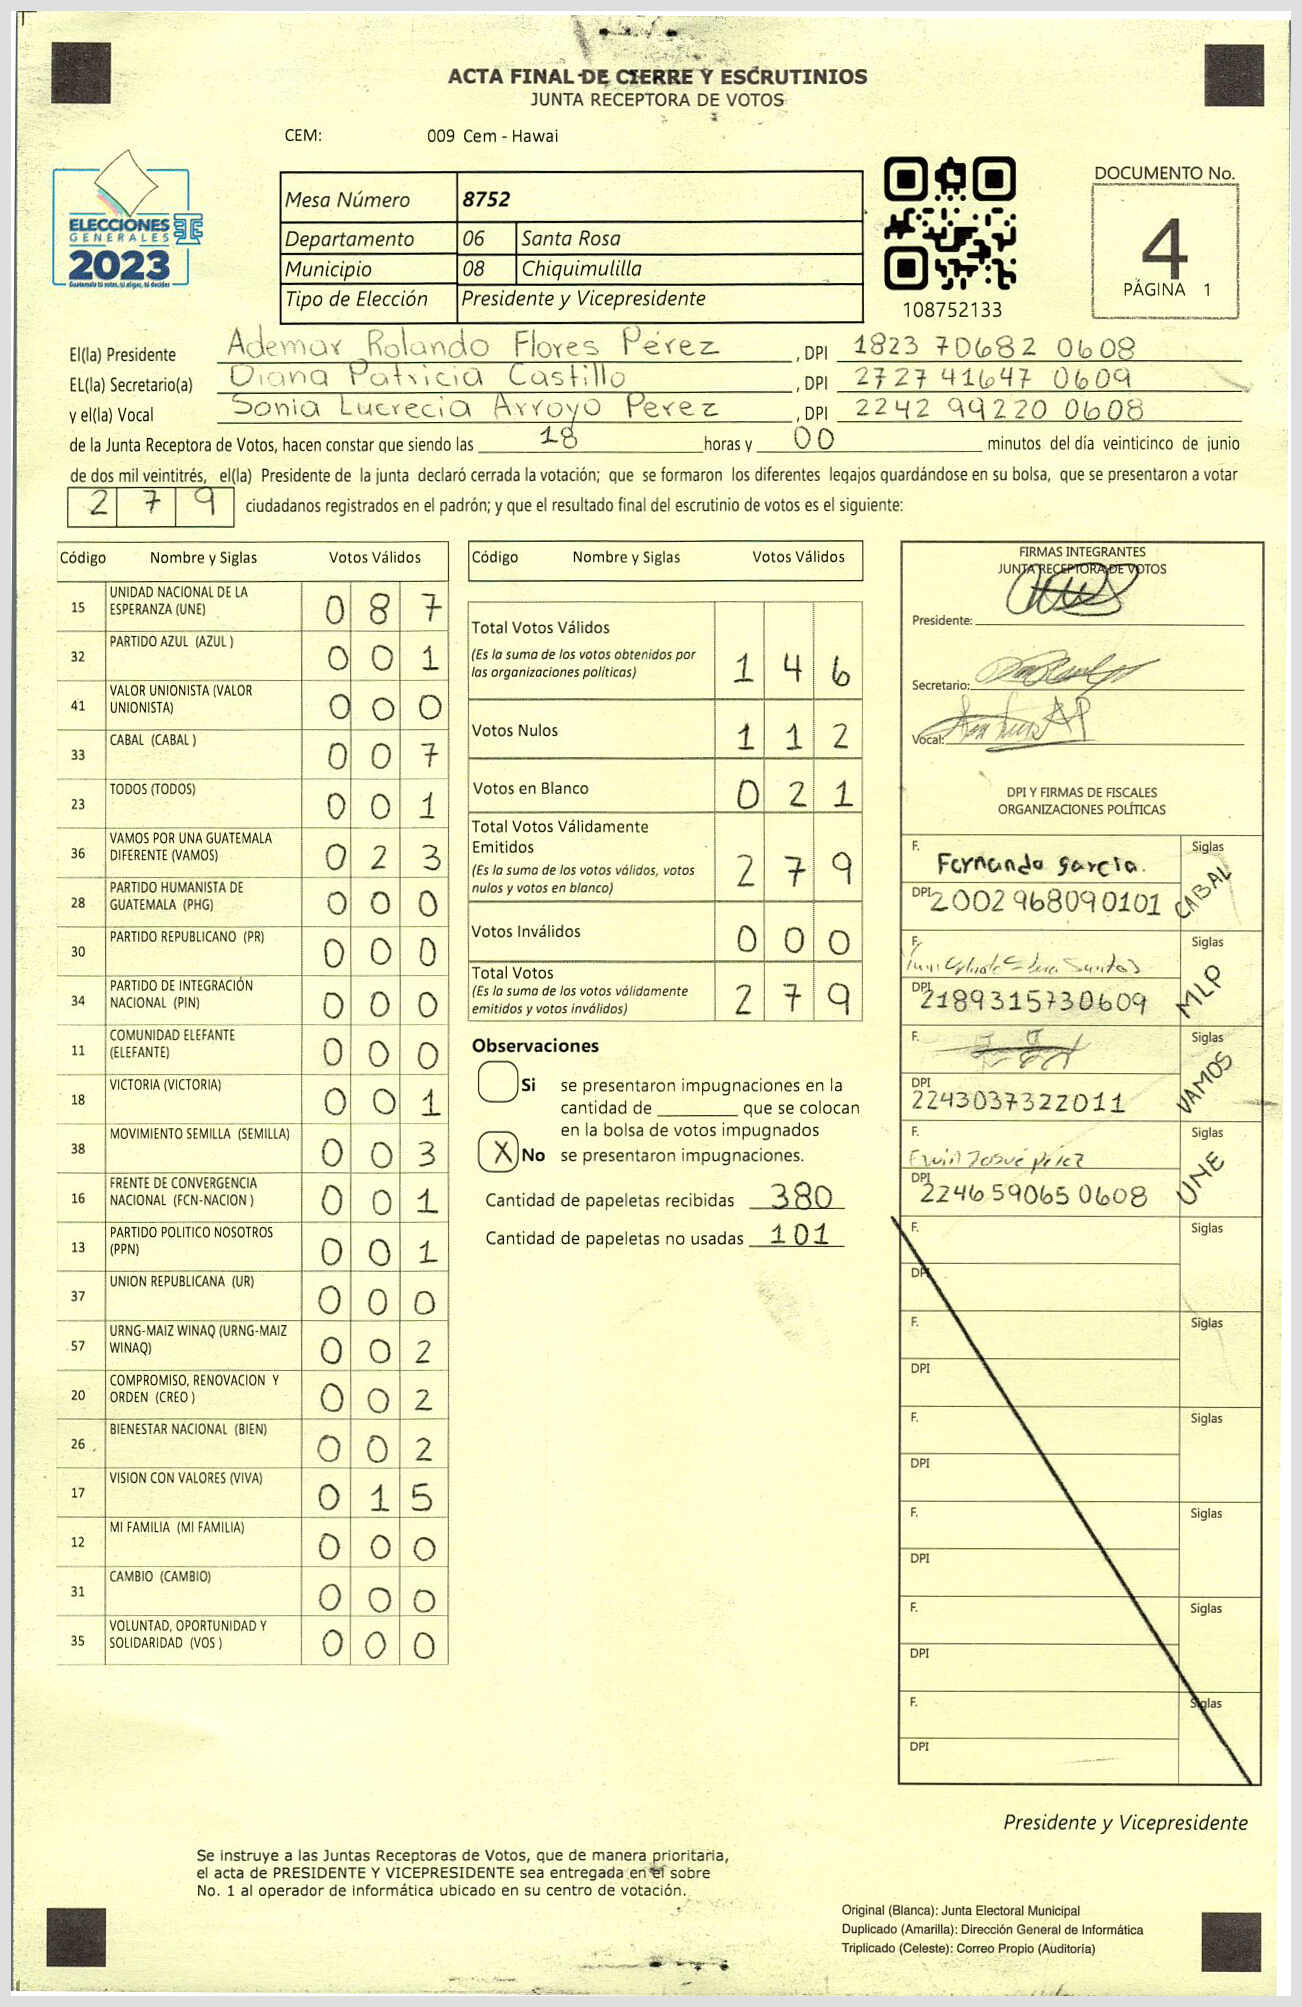 ACTA FINAL DE CIERRE Y ESCRUTINIOS
JUNTA RECEPTORA DE VOTOS
CEM: 009 Cem - Hawai
ELECCIONES
GENERALES
2023
Guatemala tú votas, tú eliges, tú decides
Mesa Número 8752
Departamento 06 Santa Rosa
Municipio 08 Chiquimulilla
Tipo de Elección Presidente y Vicepresidente
108752133
DOCUMENTO No.
4
PÁGINA 1
El(la) Presidente Ademar Rolando Flores Pérez, DPI 1823 70682 0608
EL(la) Secretario(a) Diana Patricia Castillo, DPI 2727 41647 0609
y el(la) Vocal Sonia Lucrecia Arroyo Perez, DPI 2242 99220 0608
de la Junta Receptora de Votos, hacen constar que siendo las 18 horas y 00 minutos del día veinticinco de junio
de dos mil veintitrés, el(la) Presidente de la junta declaró cerrada la votación; que se formaron los diferentes legajos quardándose en su bolsa, que se presentaron a votar
279 ciudadanos registrados en el padrón; y que el resultado final del escrutinio de votos es el siguiente:
Código Nombre y Siglas Votos Válidos
15 UNIDAD NACIONAL DE LA ESPERANZA (UNE) 087
32 PARTIDO AZUL (AZUL ) 001
41 VALOR UNIONISTA (VALOR UNIONISTA) 000
33 CABAL (CABAL ) 007
23 TODOS (TODOS) 001
36 VAMOS POR UNA GUATEMALA DIFERENTE (VAMOS) 023
28 PARTIDO HUMANISTA DE GUATEMALA (PHG) 000
30 PARTIDO REPUBLICANO (PR) 000
34 PARTIDO DE INTEGRACIÓN NACIONAL (PIN) 000
11 COMUNIDAD ELEFANTE (ELEFANTE) 000
18 VICTORIA (VICTORIA) 001
38 MOVIMIENTO SEMILLA (SEMILLA) 003
16 FRENTE DE CONVERGENCIA NACIONAL (FCN-NACION ) 001
13 PARTIDO POLITICO NOSOTROS (PPN) 001
37 UNION REPUBLICANA (UR) 000
57 URNG-MAIZ WINAQ (URNG-MAIZ WINAQ) 002
20 COMPROMISO, RENOVACION Y ORDEN (CREO ) 002
26 BIENESTAR NACIONAL (BIEN) 002
17 VISION CON VALORES (VIVA) 015
12 MI FAMILIA (MI FAMILIA) 000
31 CAMBIO (CAMBIO) 000
35 VOLUNTAD, OPORTUNIDAD Y SOLIDARIDAD (VOS ) 000
Código Nombre y Siglas Votos Válidos
Total Votos Válidos 146
(Es la suma de los votos obtenidos por
las organizaciones políticas)
Votos Nulos 112
Votos en Blanco 021
Total Votos Válidamente
Emitidos 279
(Es la suma de los votos válidos, votos
nulos y votos en blanco)
Votos Inválidos 000
Total Votos 279
(Es la suma de los votos válidamente
emitidos y votos inválidos)
Observaciones
Si se presentaron impugnaciones en la
cantidad de ________ que se colocan
en la bolsa de votos impugnados
X No se presentaron impugnaciones.
Cantidad de papeletas recibidas 380
Cantidad de papeletas no usadas 101
FIRMAS INTEGRANTES
JUNTA RECEPTORA DE VOTOS
Presidente:
Secretario:
Vocal:
DPI Y FIRMAS DE FISCALES
ORGANIZACIONES POLÍTICAS
F. Fernando García. Siglas CABAL
DPI 2002968090101
F. Siglas MLP
DPI 2189315730609
F. Siglas VAMOS
DPI 2243037322011
F. Erwin Josué Pérez Siglas UNE
DPI 2246590650608
F. Siglas
DPI
F. Siglas
DPI
F. Siglas
DPI
F. Siglas
DPI
F. Siglas
DPI
F. Siglas
DPI
Presidente y Vicepresidente
Se instruye a las Juntas Receptoras de Votos, que de manera prioritaria,
el acta de PRESIDENTE Y VICEPRESIDENTE sea entregada en el sobre
No. 1 al operador de informática ubicado en su centro de votación.
Original (Blanca): Junta Electoral Municipal
Duplicado (Amarilla): Dirección General de Informática
Triplicado (Celeste): Correo Propio (Auditoría)